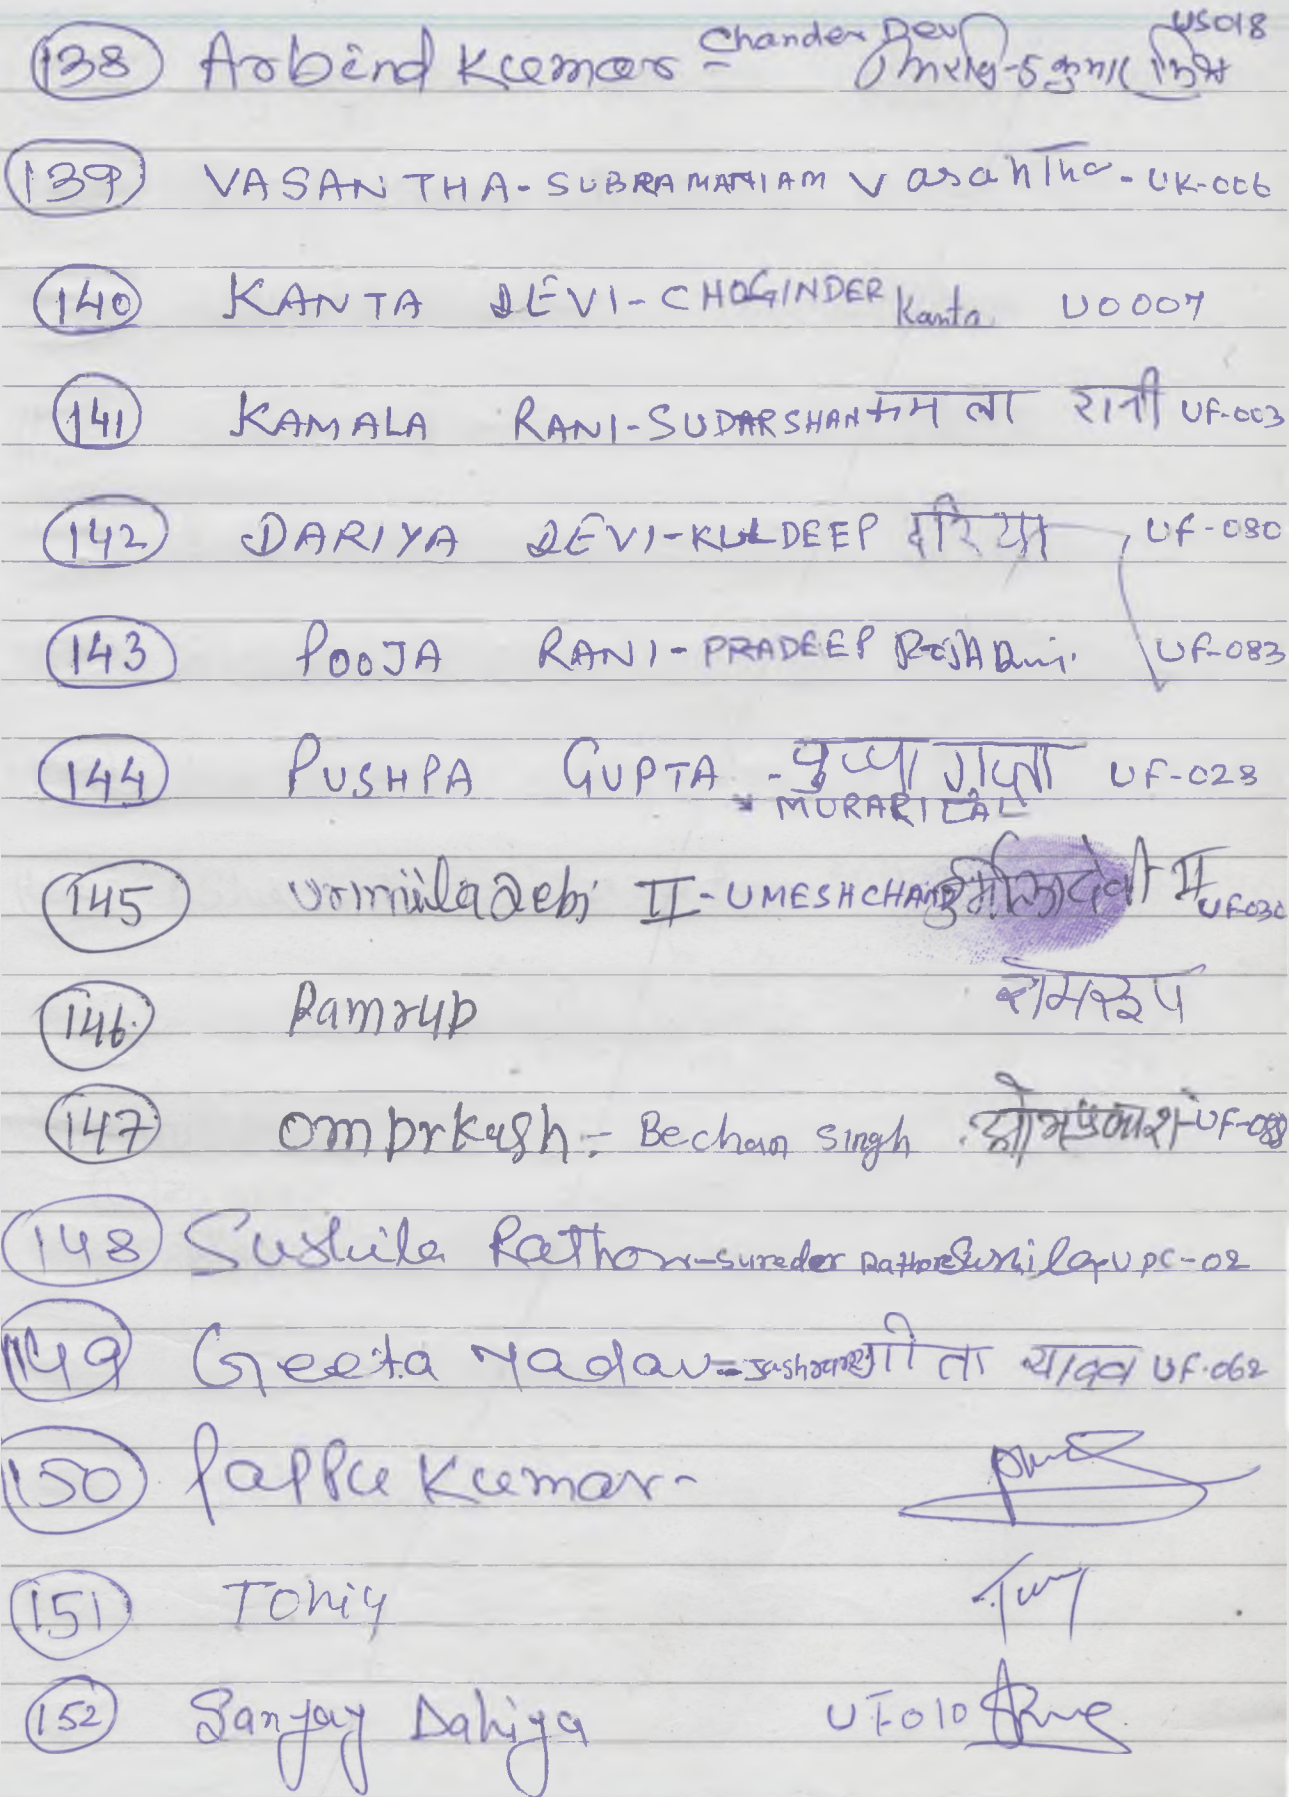 138 Arbind Kumar - Chander Dev US018
139 VASANTHA-SUBRAMANIAM Vasantha - UK-006
140 KANTA DEVI-CHOGINDER Kanta U0007
141 KAMALA RANI-SUDARSHAN कमला रानी UF-003
142 DARIYA DEVI-KULDEEP दरिया UF-080
143 POOJA RANI-PRADEEP UF-083
144 PUSHPA GUPTA - पुष्पा गुप्ता UF-028
MURARILAL
145 Urmiila Debi II-UMESHCHAND उर्मीलादेवी II UF030
146 Ramrup रामरूप
147 omprkash - Bechan Singh ओमप्रकाश
148 Sushila Rathor-Sureder Rathore UPC-02
149 Geeta Yadav - गीता यादव UF-062
150 Pappu Kumar-
151 Toniy
152 Sanjay Dahiya UF010